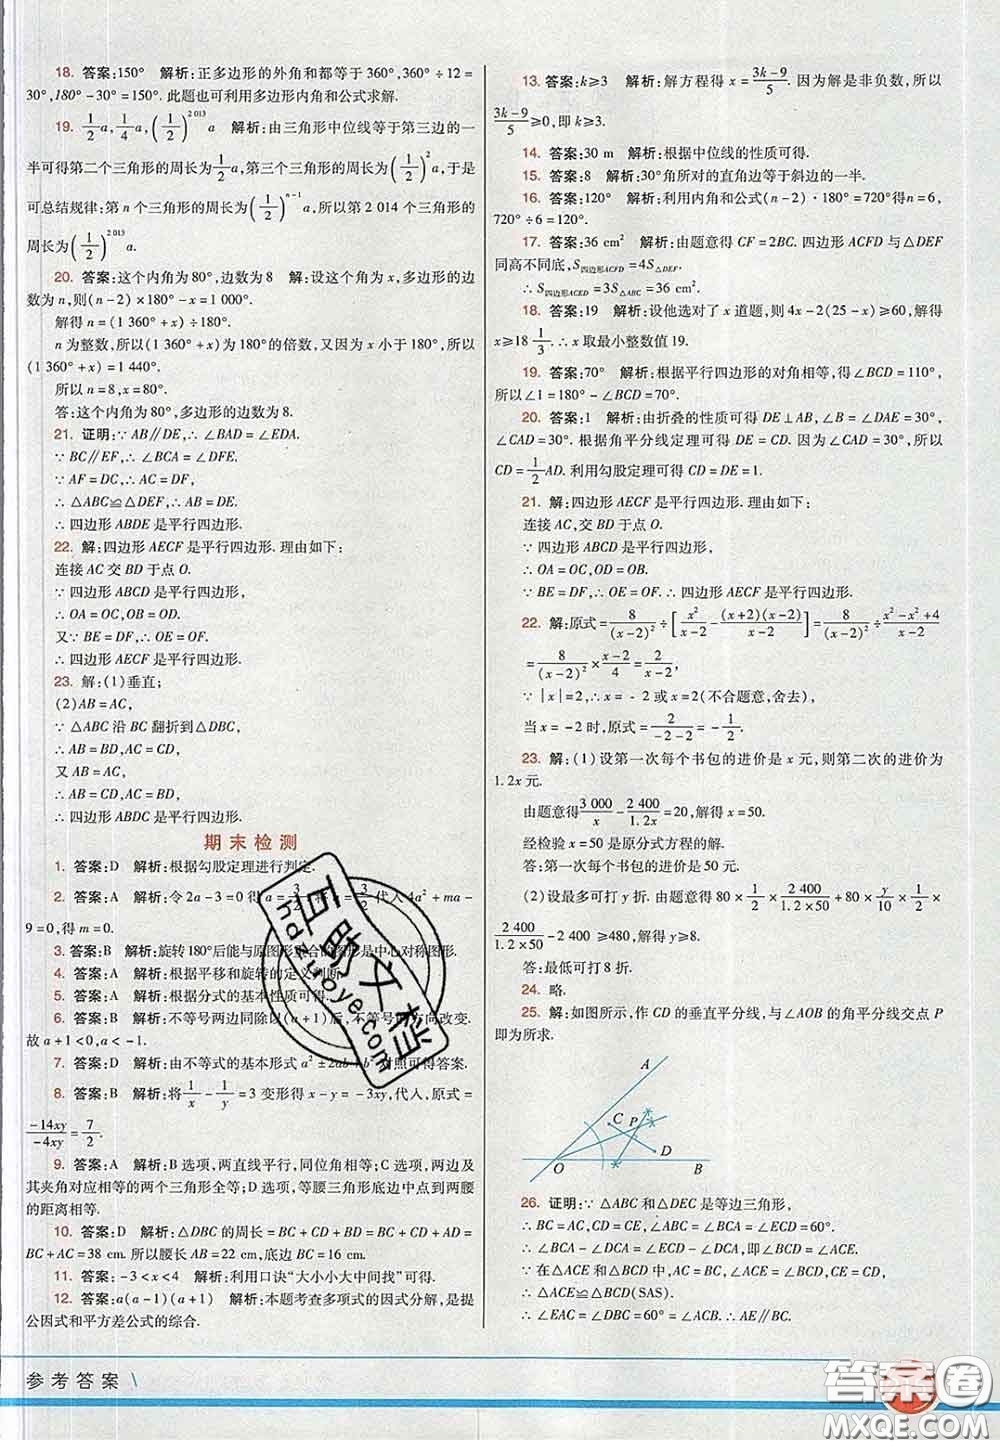 18. 答案:150° 解析:正多边形的外角和都等于360°,360°÷12=
30°,180°-30°=150°. 此题也可利用多边形内角和公式求解.
19. 1/2 a, 1/4 a, (1/2)^2013 a 解析:由三角形中位线等于第三边的一
半可得第二个三角形的周长为 1/2 a,第三个三角形的周长为(1/2)^2 a,于是
可总结规律:第 n 个三角形的周长为(1/2)^(n-1) a,所以第 2 014 个三角形的
周长为(1/2)^2013 a.
20. 答案:这个内角为80°,边数为8 解:设这个角为 x,多边形的边
数为 n,则(n-2)×180°-x=1 000°.
解得 n=(1 360°+x)÷180°.
n 为整数,所以(1 360°+x)为180°的倍数,又因为 x 小于180°,所以
(1 360°+x)=1 440°.
所以 n=8,x=80°.
答:这个内角为80°,多边形的边数为8.
21. 证明:∵AB∥DE,∴∠BAD=∠EDA.
∵BC∥EF,∴∠BCA=∠DFE.
∵AF=DC,∴AC=DF.
∴△ABC≌△DEF,∴AB=DE.
∴四边形 ABDE 是平行四边形.
22. 解:四边形 AECF 是平行四边形. 理由如下:
连接 AC 交 BD 于点 O.
∵四边形 ABCD 是平行四边形,
∴OA=OC,OB=OD.
又∵BE=DF,∴OE=OF.
∴四边形 AECF 是平行四边形.
23. 解:(1)垂直;
(2)AB=AC,
∵△ABC 沿 BC 翻折到△DBC,
∴AB=BD,AC=CD,
又 AB=AC,
∴AB=BD=AC=CD,
∴四边形 ABDC 是平行四边形.
期末检测
1. 答案:D 解析:根据勾股定理进行判定.
2. 答案:A 解析:令 2a-3=0 得 a=3/2,将 3/2 代入 4a²+ma-
9=0,得 m=0.
3. 答案:B 解析:旋转180°后能与原图形重合的图形是中心对称图形.
4. 答案:A 解析:根据平移和旋转的定义判断.
5. 答案:A 解析:根据分式的基本性质可得.
6. 答案:B 解析:不等号两边同除以(a+1)后,不等号的方向改变.
故 a+1<0,a<-1.
7. 答案:D 解析:由不等式的基本形式 a²±2ab+b² 对照可得答案.
8. 答案:B 解析:将 1/x - 1/y =3 变形得 x-y=-3xy,代入,原式=
-14xy/-4xy = 7/2.
9. 答案:A 解析:B 选项,两直线平行,同位角相等;C 选项,两边及
其夹角对应相等的两个三角形全等;D 选项,等腰三角形底边中点到两腰
的距离相等.
10. 答案:D 解析:△DBC 的周长=BC+CD+BD=BC+CD+AD=
BC+AC=38 cm. 所以腰长 AB=22 cm,底边 BC=16 cm.
11. 答案:-3<x<4 解析:利用口诀“大小小大中间找”可得.
12. 答案:a(a-1)(a+1) 解析:本题考查多项式的因式分解,是提
公因式和平方差公式的综合.
13. 答案:k≥3 解析:解方程得 x=(3k-9)/5. 因为解是非负数,所以
(3k-9)/5≥0,即 k≥3.
14. 答案:30 m 解析:根据中位线的性质可得.
15. 答案:8 解析:30°角所对的直角边等于斜边的一半.
16. 答案:120° 解析:利用内角和公式(n-2)·180°=720°得 n=6,
720°÷6=120°.
17. 答案:36 cm² 解析:由题意得 CF=2BC. 四边形 ACFD 与△DEF
同高不同底,S四边形ACFD=4S△DEF.
∴S四边形ACED=3S△ABC=36 cm².
18. 答案:19 解析:设他选对了 x 道题,则 4x-2(25-x)≥60,解得
x≥18 1/3. ∴x 取最小整数值 19.
19. 答案:70° 解析:根据平行四边形的对角相等,得∠BCD=110°,
所以∠1=180°-∠BCD=70°.
20. 答案:1 解析:由折叠的性质可得 DE⊥AB,∠B=∠DAE=30°,
∠CAD=30°. 根据角平分线定理可得 DE=CD. 因为∠CAD=30°,所以
CD=1/2 AD. 利用勾股定理可得 CD=DE=1.
21. 解:四边形 AECF 是平行四边形. 理由如下:
连接 AC,交 BD 于点 O.
∵四边形 ABCD 是平行四边形,
∴OA=OC,OD=OB.
∵BE=DF,∴OE=OF.∴四边形 AECF 是平行四边形.
22. 解:原式=8/(x-2)²÷[x²/(x-2)-(x+2)(x-2)/(x-2)]=8/(x-2)²÷(x²-x²+4)/(x-2)
=8/(x-2)²×(x-2)/4=2/(x-2),
∵|x|=2,∴x=-2 或 x=2(不合题意,舍去),
当 x=-2 时,原式=2/(-2-2)=-1/2.
23. 解:(1)设第一次每个书包的进价是 x 元,则第二次的进价为
1.2x 元.
由题意得 3 000/x - 2 400/1.2x =20,解得 x=50.
经检验 x=50 是原分式方程的解.
答:第一次每个书包的进价是 50 元.
(2)设最多可打 y 折. 由题意得 80×1/2×2 400/(1.2×50)+80×y/10×1/2×
2 400/(1.2×50)-2 400≥480,解得 y≥8.
答:最低可打 8 折.
24. 略.
25. 解:如图所示,作 CD 的垂直平分线,与∠AOB 的角平分线交点 P
即为所求.
A
C P
D
O B
26. 证明:∵△ABC 和△DEC 是等边三角形,
∴BC=AC,CD=CE,∠BCA=∠ECD=60°.
∴∠BCA-∠DCA=∠ECD-∠DCA,即∠BCD=∠ACE.
∵在△ACE 和△BCD 中,AC=BC,∠ACE=∠BCD,CE=CD,
∴△ACE≌△BCD(SAS).
∴∠EAC=∠DBC=60°=∠ACB. ∴AE∥BC.
参考答案
互助文档
hdzuoye.com
答案圈
MXQE.COM